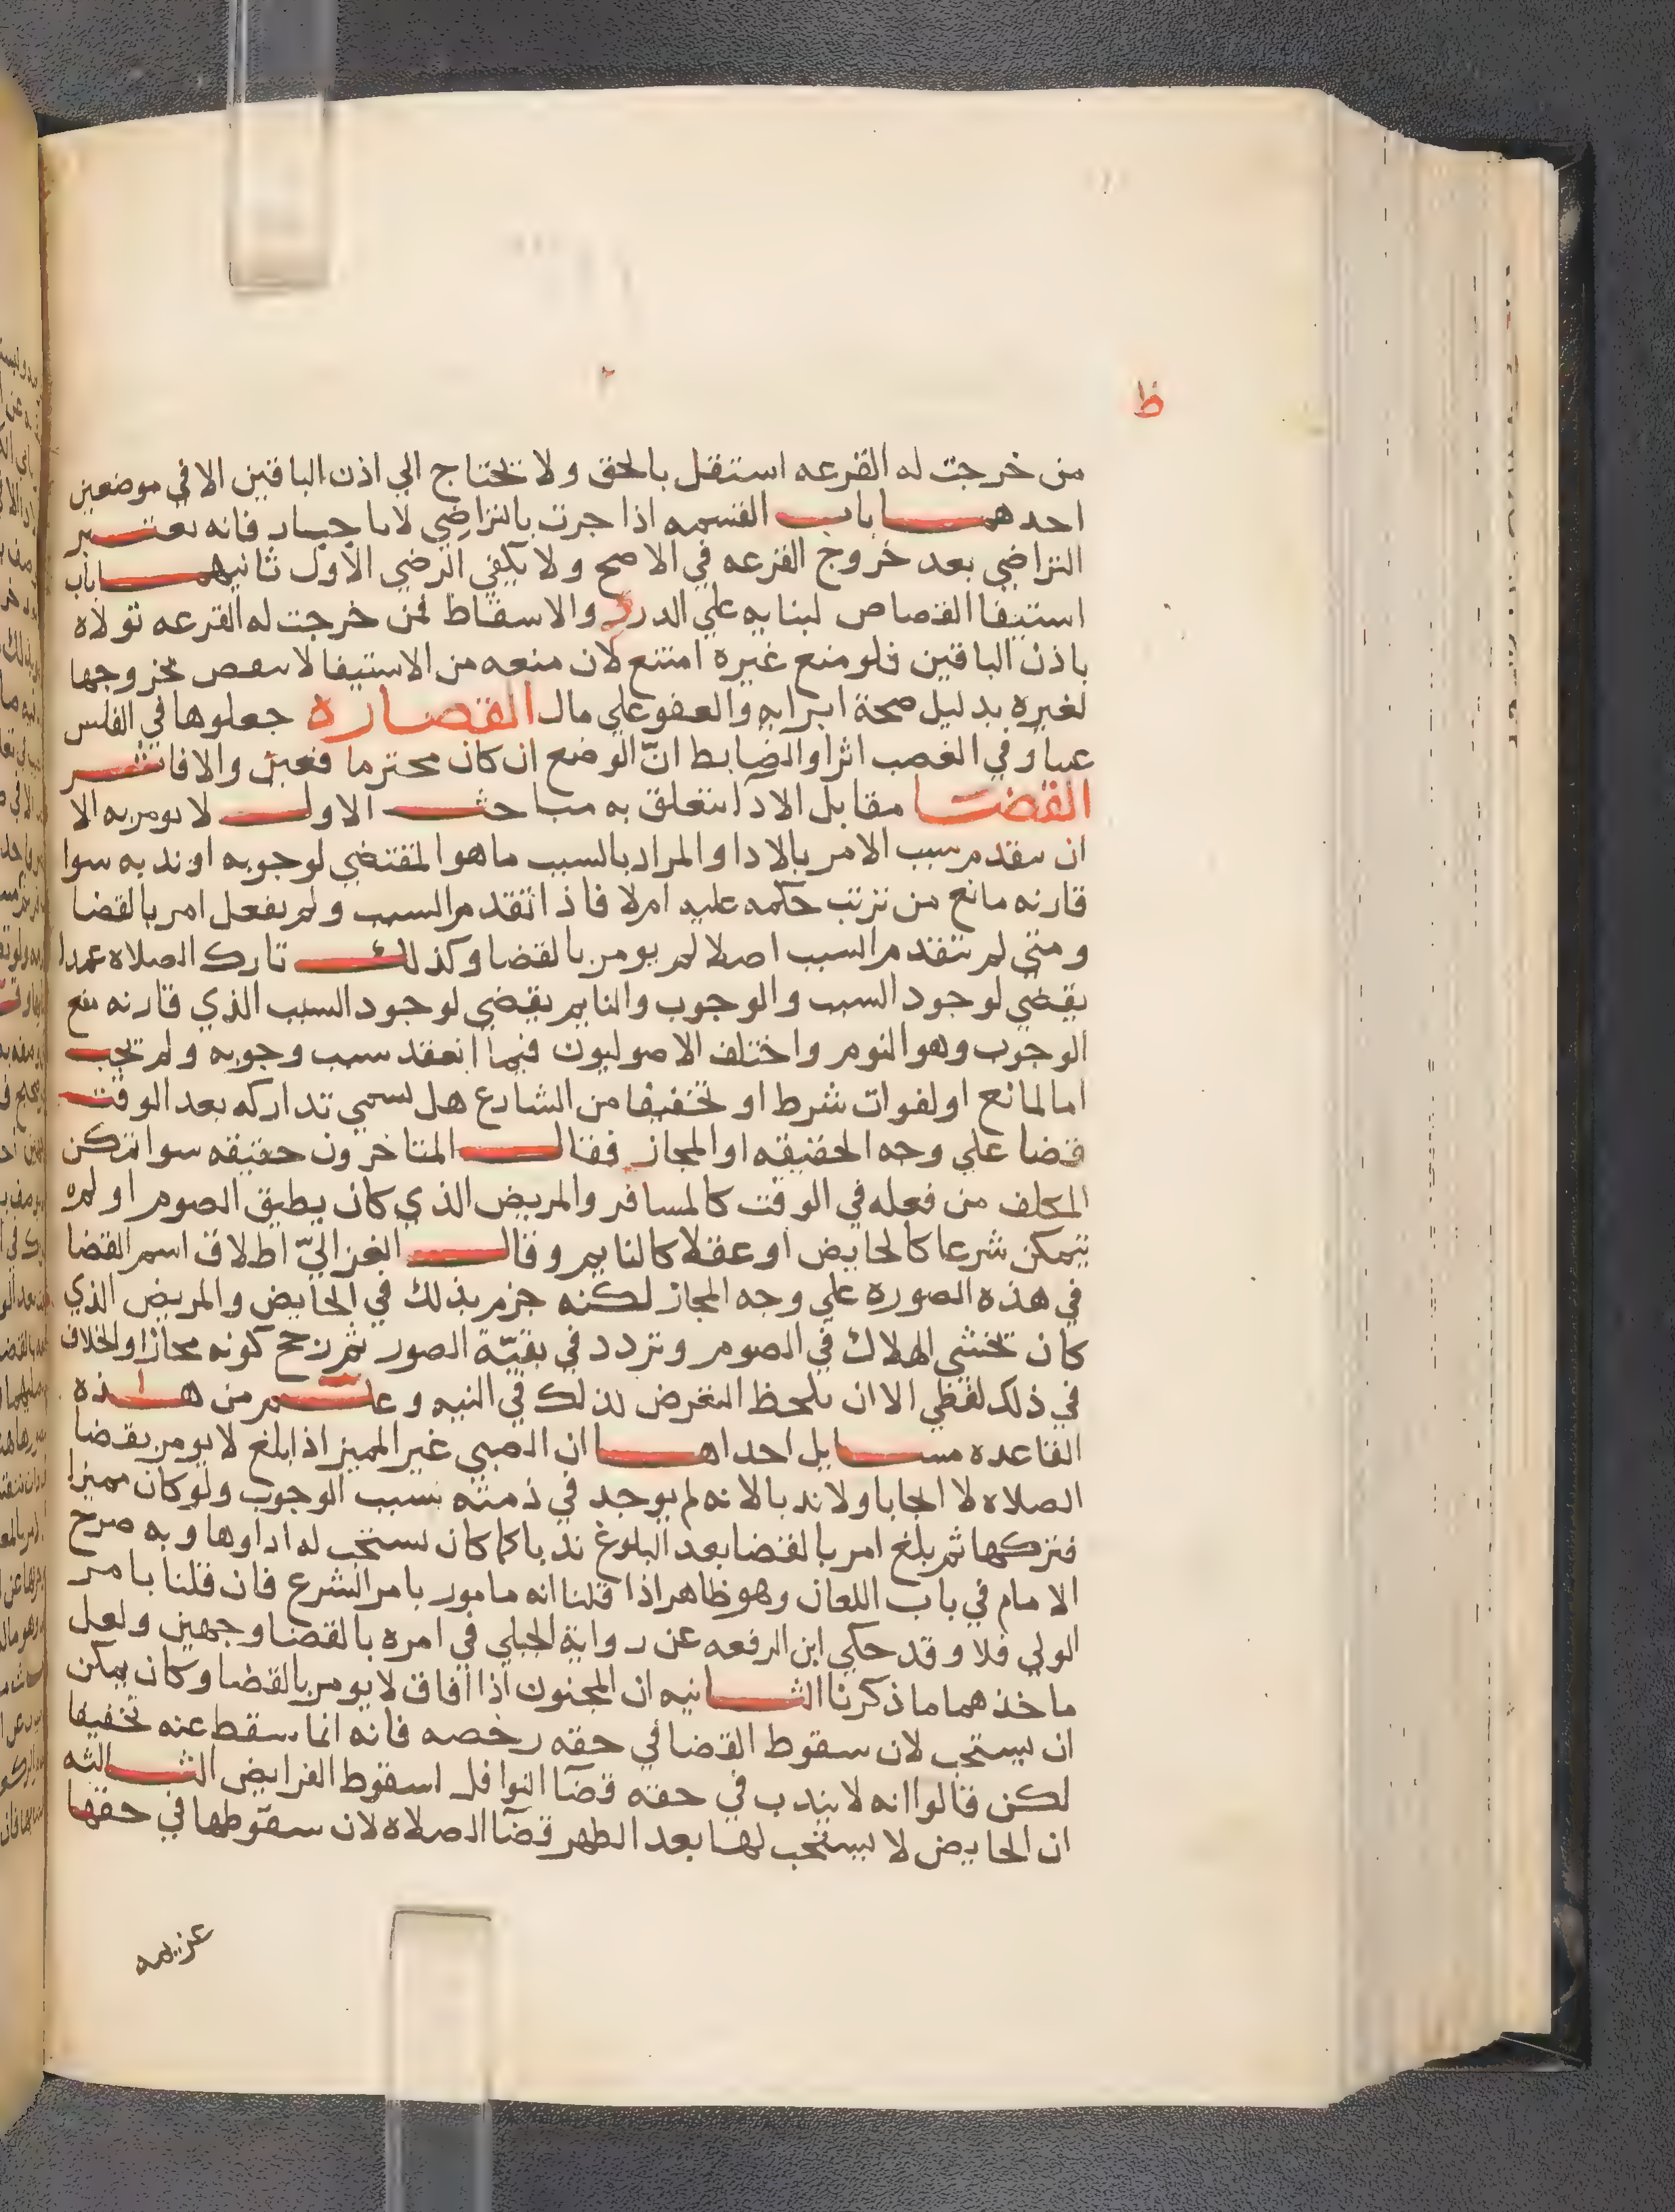 ظ
من خرجت له القرعه استقل بالحق ولا تحتاج الي اذن الباقين الا في موضعين
احدهما باب القسمه اذا جرت بالتراضي لا باجبار فانه يعتبر
التراضي بعد خروج القرعه في الاصح ولا يكفي الرضي الاول ثانيهما باب
استيفا القصاص لبنايه علي الدرء والاسقاط فمن خرجت له القرعه تولاه
باذن الباقين فلو منع غيره امتنع لان منعه من الاستيفا لا سقص بخروجها
لغيره بدليل صحة ابرايه والعفو علي مال القصارة جعلوها في الفلس
عينا وفي الغصب اثرا والضابط ان الوضع ان كان محترما فعين والا فاثر
القضا مقابل الادآ تتعلق به مباحث الاول لا يومر به الا
ان يتقدم سبب الامر بالادا والمراد بالسبب ما هو المقتضي لوجوبه او ندبه سوا
قارنه مانع من ترتب حكمه عليه ام لا فاذا تقدم السبب ولم يفعل امر بالقضا
ومتي لم يتقدم السبب اصلا لم يومر بالقضا وكذلك تارك الصلاه عمدا
يقضي لوجود السبب والوجوب والنايم يقضي لوجود السبب الذي قارنه منع
الوجوب وهو النوم واختلف الاصوليون فيما انعقد سبب وجوبه ولم تجب
اما لمانع او لفوات شرط او تخفيفا من الشارع هل يسمي تداركه بعد الوقت
قضا علي وجه الحقيقه او المجاز فقال المتاخرون حقيقه سوا تمكن
المكلف من فعله في الوقت كالمسافر والمريض الذي كان يطيق الصوم او لم
يتمكن شرعا كالحايض او عقلا كالنايم وقال الغزاليّ اطلاق اسم القضا
في هذه الصوره علي وجه المجاز لكنه جزم بذلك في الحايض والمريض الذي
كان يخشي الهلاك في الصوم وتردد في بقيّة الصور ثم رجح كونه مجازا والخلاف
في ذلك لفظي الا ان يلحظ التعرض لذلك في النيه وعلم من هذه
القاعده مسايل احداها ان الصبي غير المميز اذا بلغ لا يومر بقضا
الصلاه لا ايجابا ولا ندبا لانه لم يوجد في ذمته بسبب الوجوب ولو كان مميزا
فتركها ثم بلغ امر بالقضا بعد البلوغ ندبا كما كان يستحب له اداوها وبه صرح
الامام في باب اللعان وهو ظاهر اذا قلنا انه مامور بامر الشرع فان قلنا بامر
الولي فلا وقد حكي ابن الرفعه عن رواية الجيلي في امره بالقضا وجهين ولعل
ماخذهما ما ذكرنا الثانيه ان المجنون اذا افاق لا يومر بالقضا وكان يمكن
ان يستحب لان سقوط القضا في حقه رخصه فانه انما سقط عنه تخفيفا
لكن قالوا انه لا يندب في حقه قضآ النوافل اسقوط الفرايض الثالثه
ان الحايض لا يستحب لها بعد الطهر قضآ الصلاه لان سقوطها في حقها
عزيمه